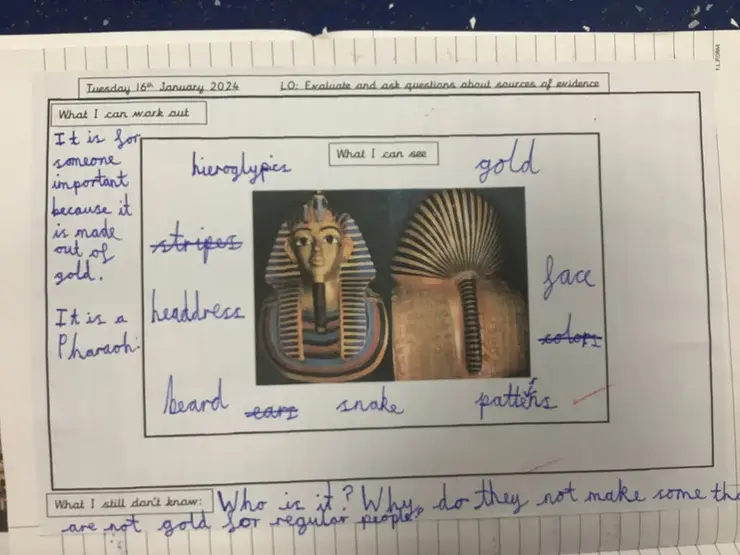 Tuesday 16th January 2024
LO: Evaluate and ask questions about sources of evidence
What I can work out
It is for
someone
important
because it
is made
out of
gold.
It is a
Pharaoh.
What I can see
hieroglypics
gold
stripes
face
headdress
colors
beard
ears
snake
patterns
What I still don't know: Who is it? Why do they not make some
are not gold for regular people